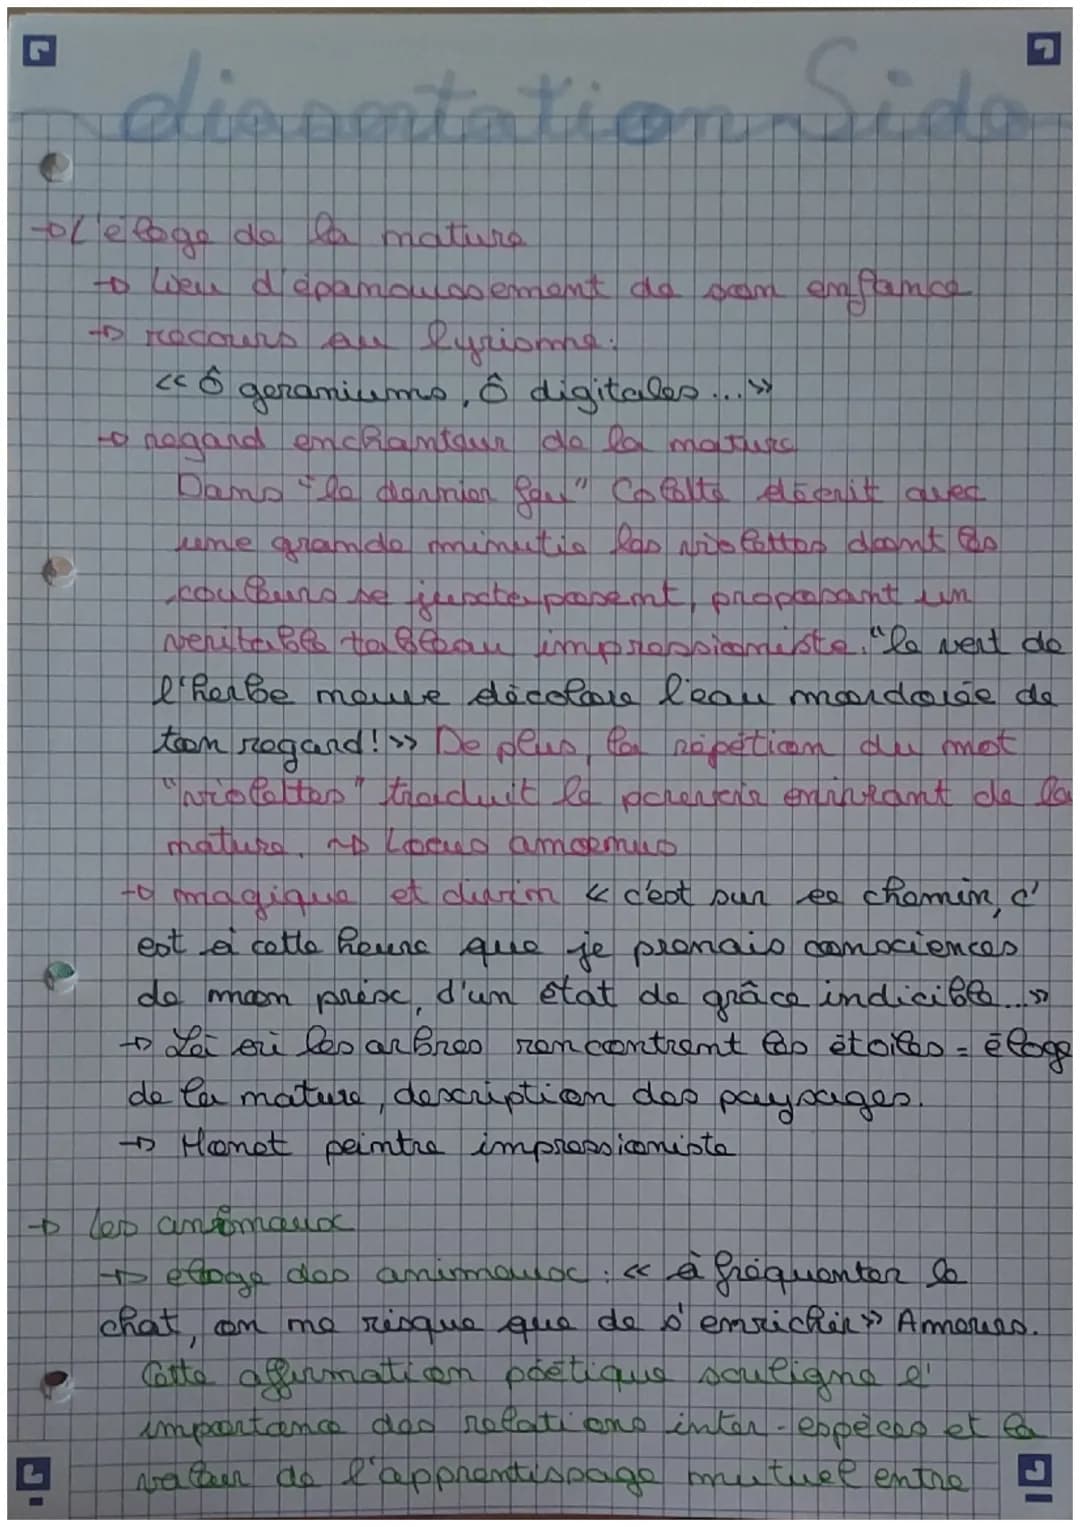 dissertation Sido
→ L'éloge de la nature
→ lieu d'épanouissement de son enfance
→ recours au lyrisme :
<< Ô geraniums, Ô digitales... >>
→ regard enchanteur de la nature
Dans "le dernier feu" Colette décrit avec
une grande minutie les violettes dont les
couleurs se juxtaposent, proposant un
veritable tableau impressioniste. "le vert de
l'herbe neuve décolore l'eau mordorée de
ton regard! >> De plus, la répétion du mot
"violettes" traduit le pouvoir enivrant de la
nature. → Locus amoenus
→ magique et divin << c'est sur ce chemin, c'
est à cette heure que je prenais consciences
de mon prix, d'un état de grâce indicible... >>
→ Là où les arbres rencontrent les étoiles = éloge
de la nature, description des paysages.
→ Monet peintre impressioniste
→ les animaux
→ eloge des animaux : << à fréquenter le
chat, on ne risque que de s'enrichir >> Amours.
Cette affirmation poétique souligne l'
importance des relations inter-espèces et la
valeur de l'apprentissage mutuel entre